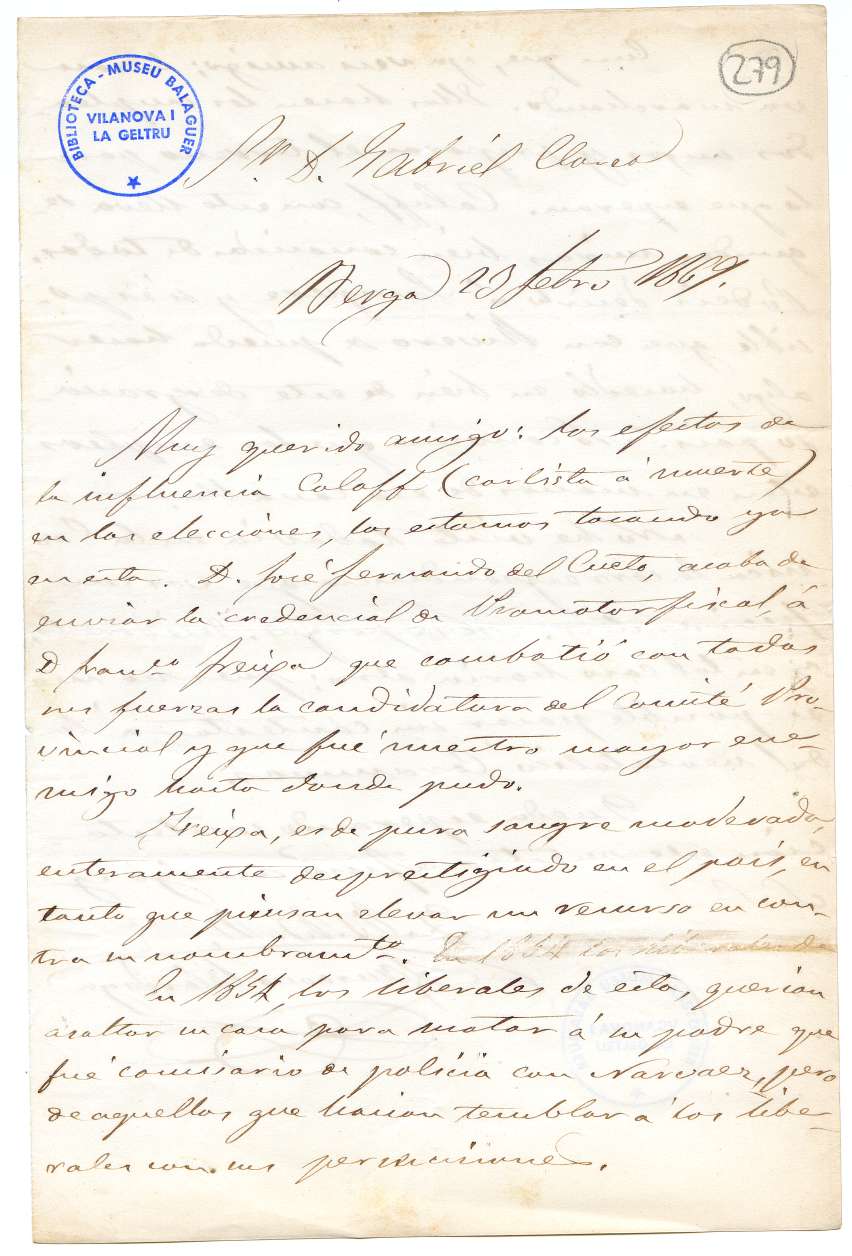 279
BIBLIOTECA - MUSEU BALAGUER
VILANOVA I
LA GELTRU
Sr. D. Gabriel Claret
Berga 23 febro 1869.
Muy querido amigo: los efectos de
la influencia Coloff (carlista á muerte)
en las elecciones, los estamos tocando ya
en esta. D. José Fernando del Cueto, acaba de
enviar la credencial de Promotor fiscal, á
D Franco. Freixa que combatió con todas
sus fuerzas la candidatura del Comité Pro-
vincial y que fué nuestro mayor ene-
migo hasta donde pudo.
Freixa, es de pura sangre moderada,
enteramente desprestigiado en el país, en
tanto que piensan elevar un recurso en con-
tra su nombramto. En 1854 los liberales de
En 1854, los liberales de esta, querian
asaltar su casa para matar á su padre que
fué comisario de policia con Narvaez, pero
de aquellos que hacian temblar á los libe-
rales con sus persecuciones.